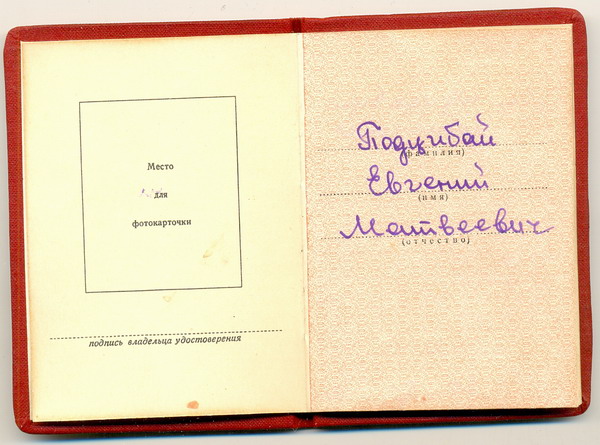 Место
для
фотокарточки
подпись владельца удостоверения
Подцибай
(фамилия)
Евгений
(имя)
Матвеевич
(отчество)